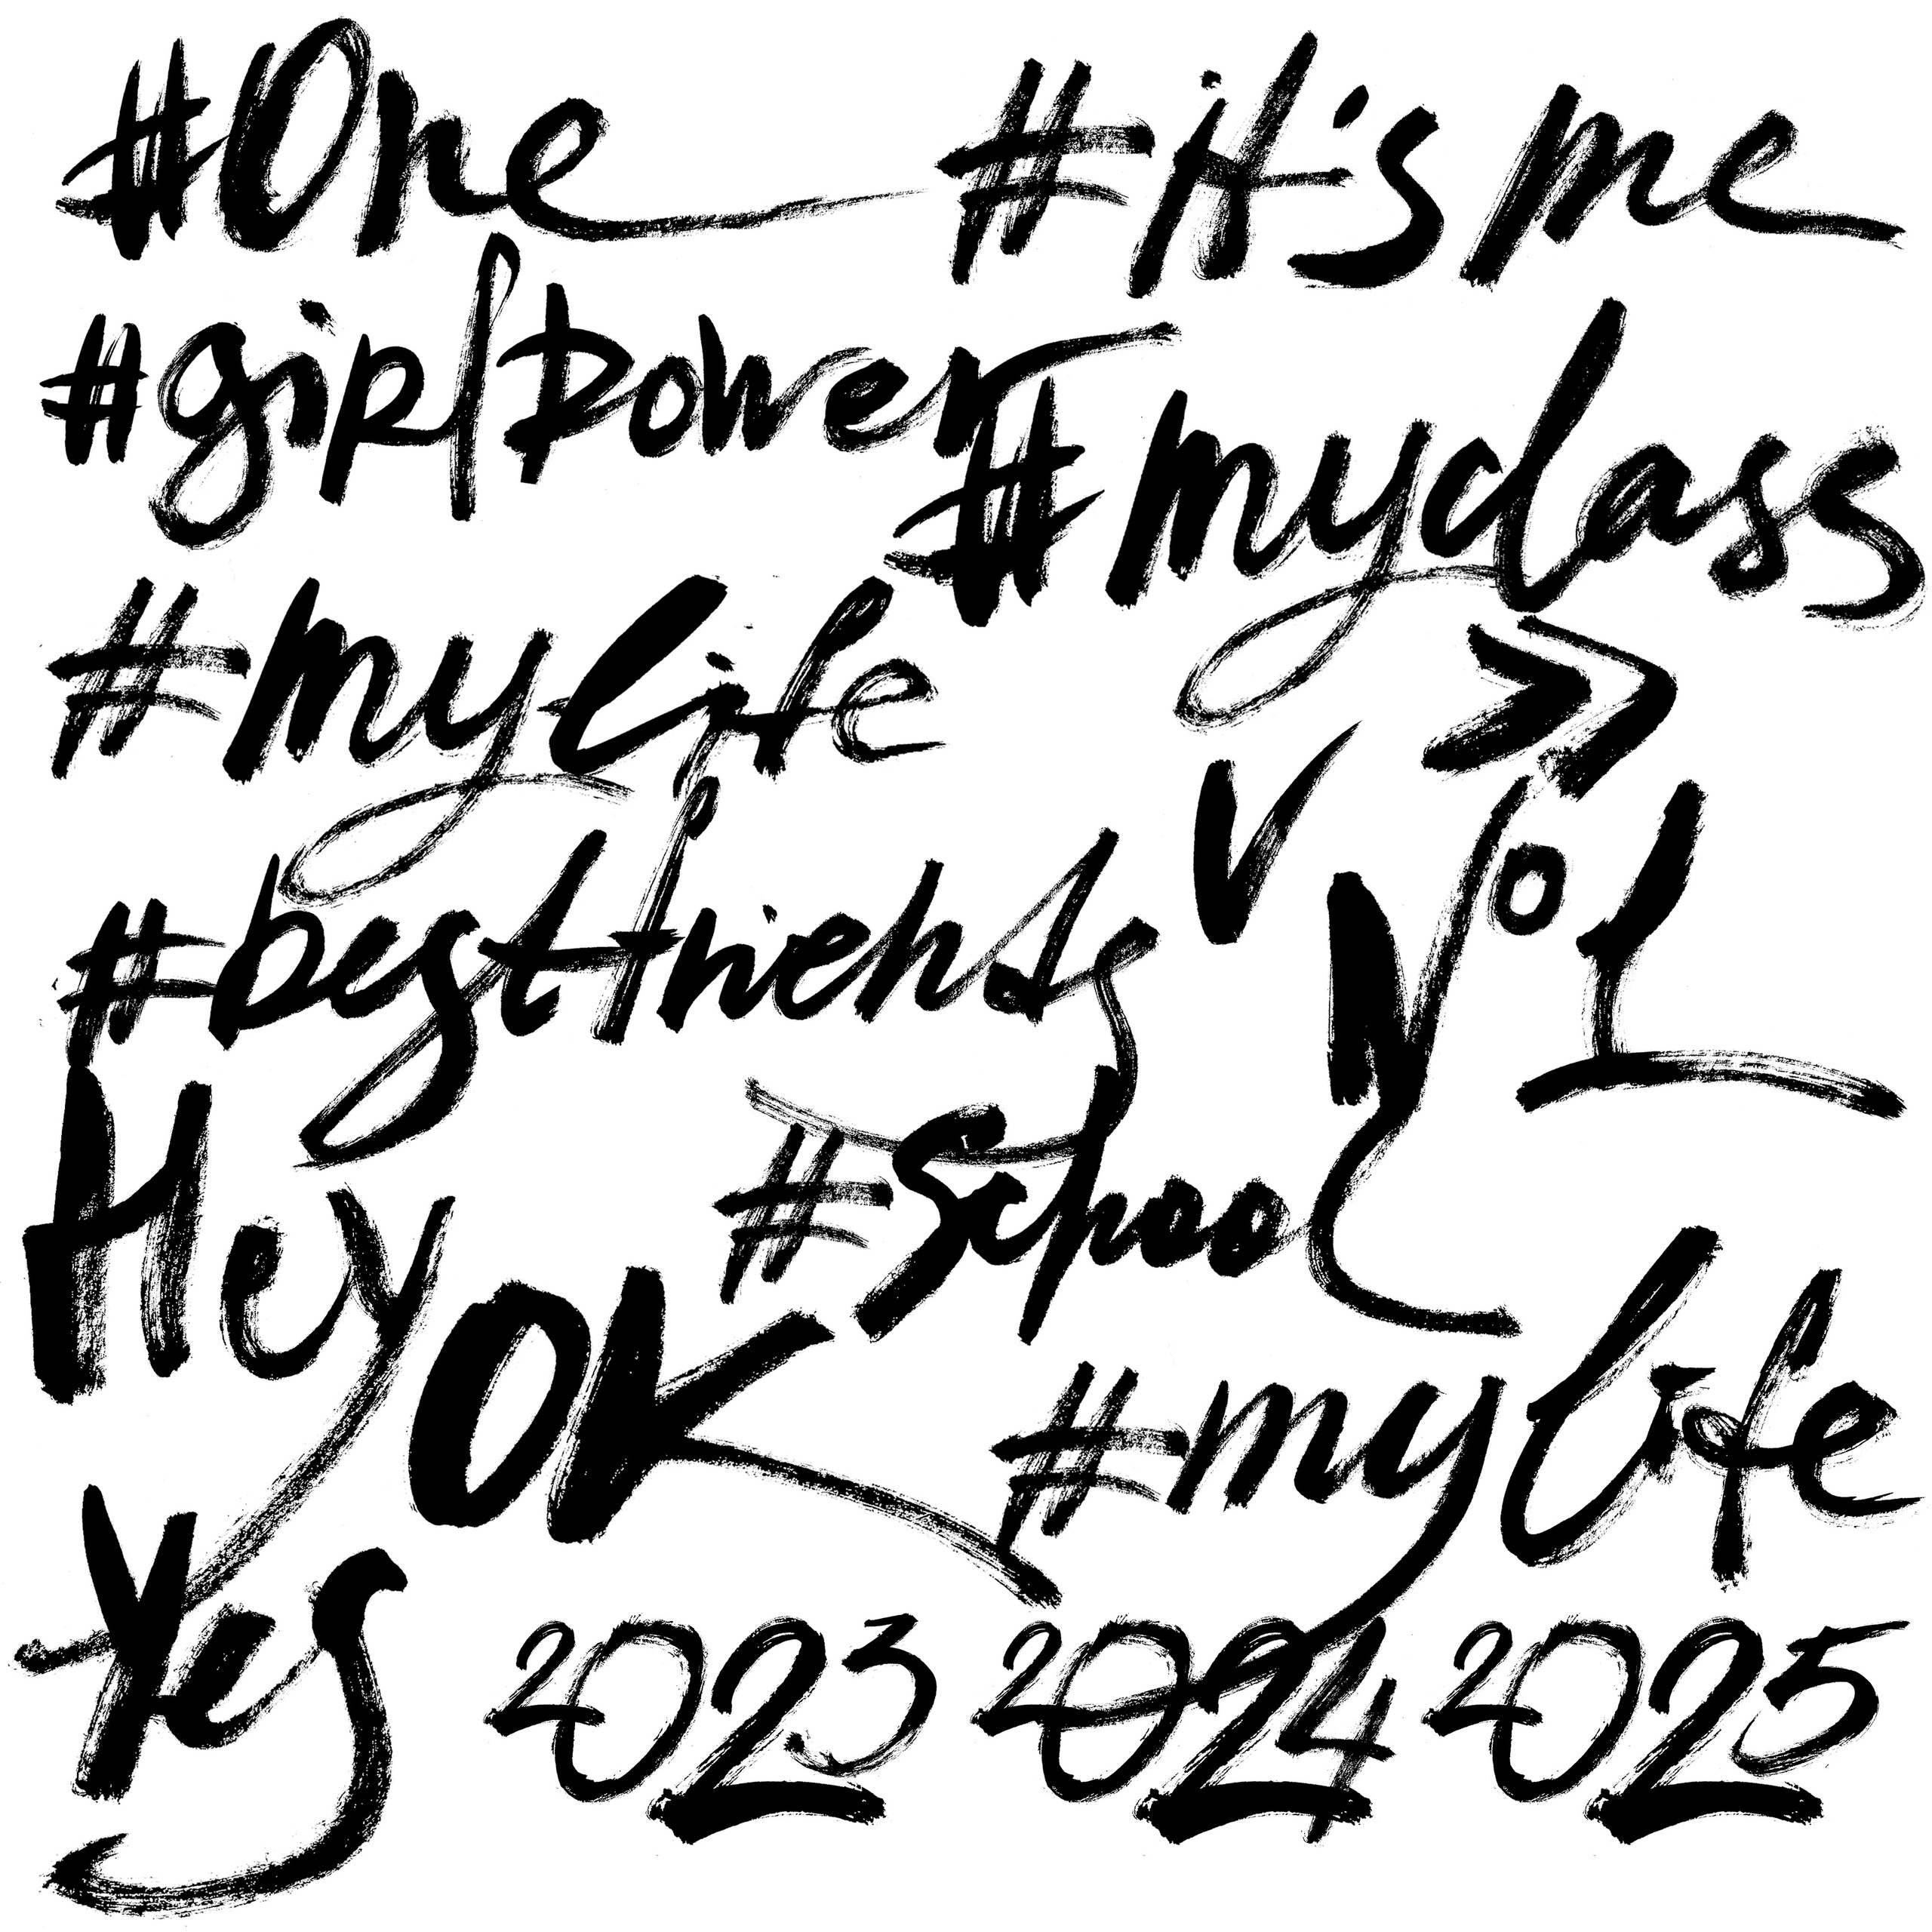 #One
#it's me
#girlpower
#myclass
#mylife
>>
V
№1
#bestfriends
Hey
#School
OK
#mylife
Yes
2023 2024 2025